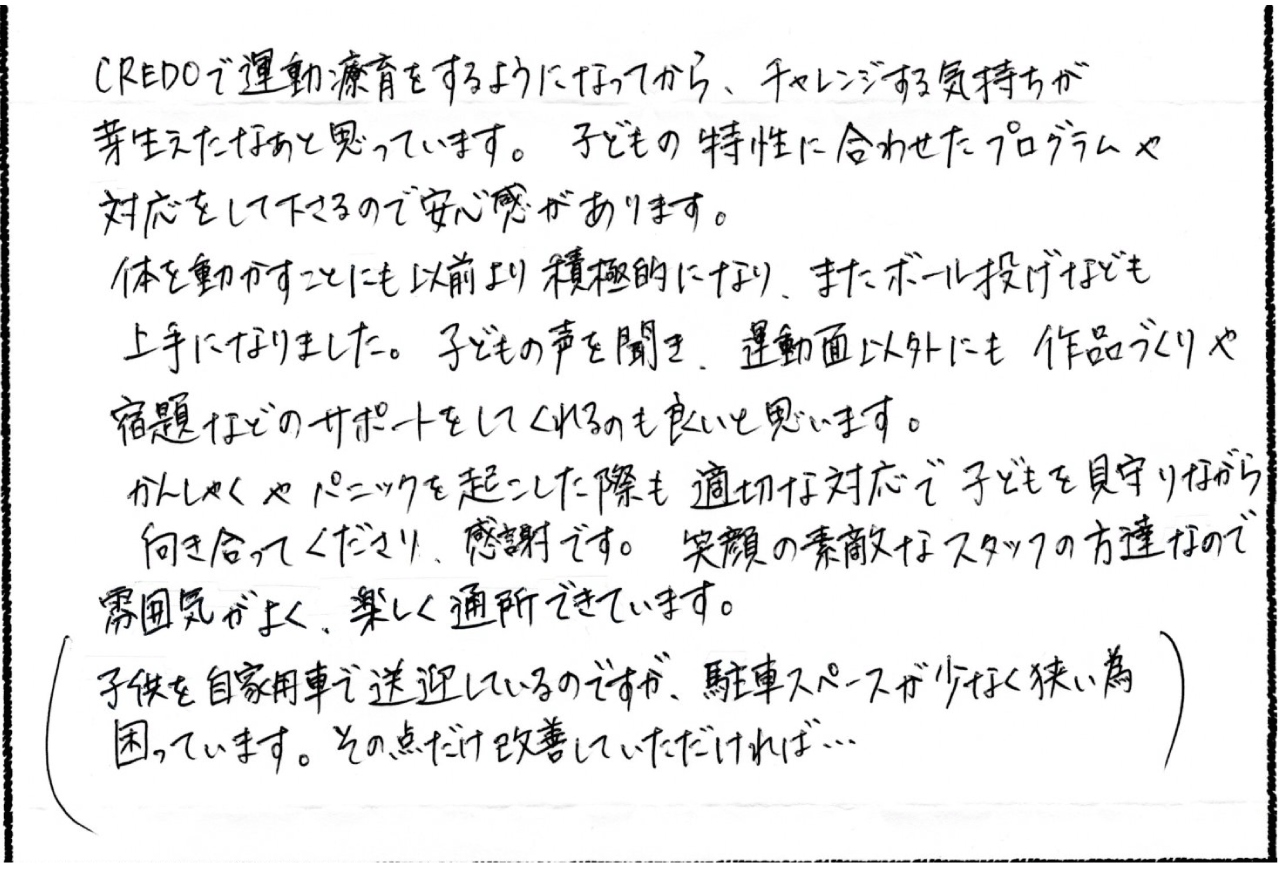 CREDOで運動療育をするようになってから、チャレンジする気持ちが
芽生えたなぁと思っています。子どもの特性に合わせたプログラムや
対応をして下さるので安心感があります。
体を動かすことにも以前より積極的になり、またボール投げなども
上手になりました。子どもの声を聞き、運動面以外にも作品づくりや
宿題などのサポートをしてくれるのも良いと思います。
かんしゃくやパニックを起こした際も適切な対応で子どもを見守りながら
向き合ってくださり、感謝です。笑顔の素敵なスタッフの方達なので
雰囲気がよく、楽しく通所できています。
(子供を自家用車で送迎しているのですが、駐車スペースが少なく狭い為
困っています。その点だけ改善していただければ…)